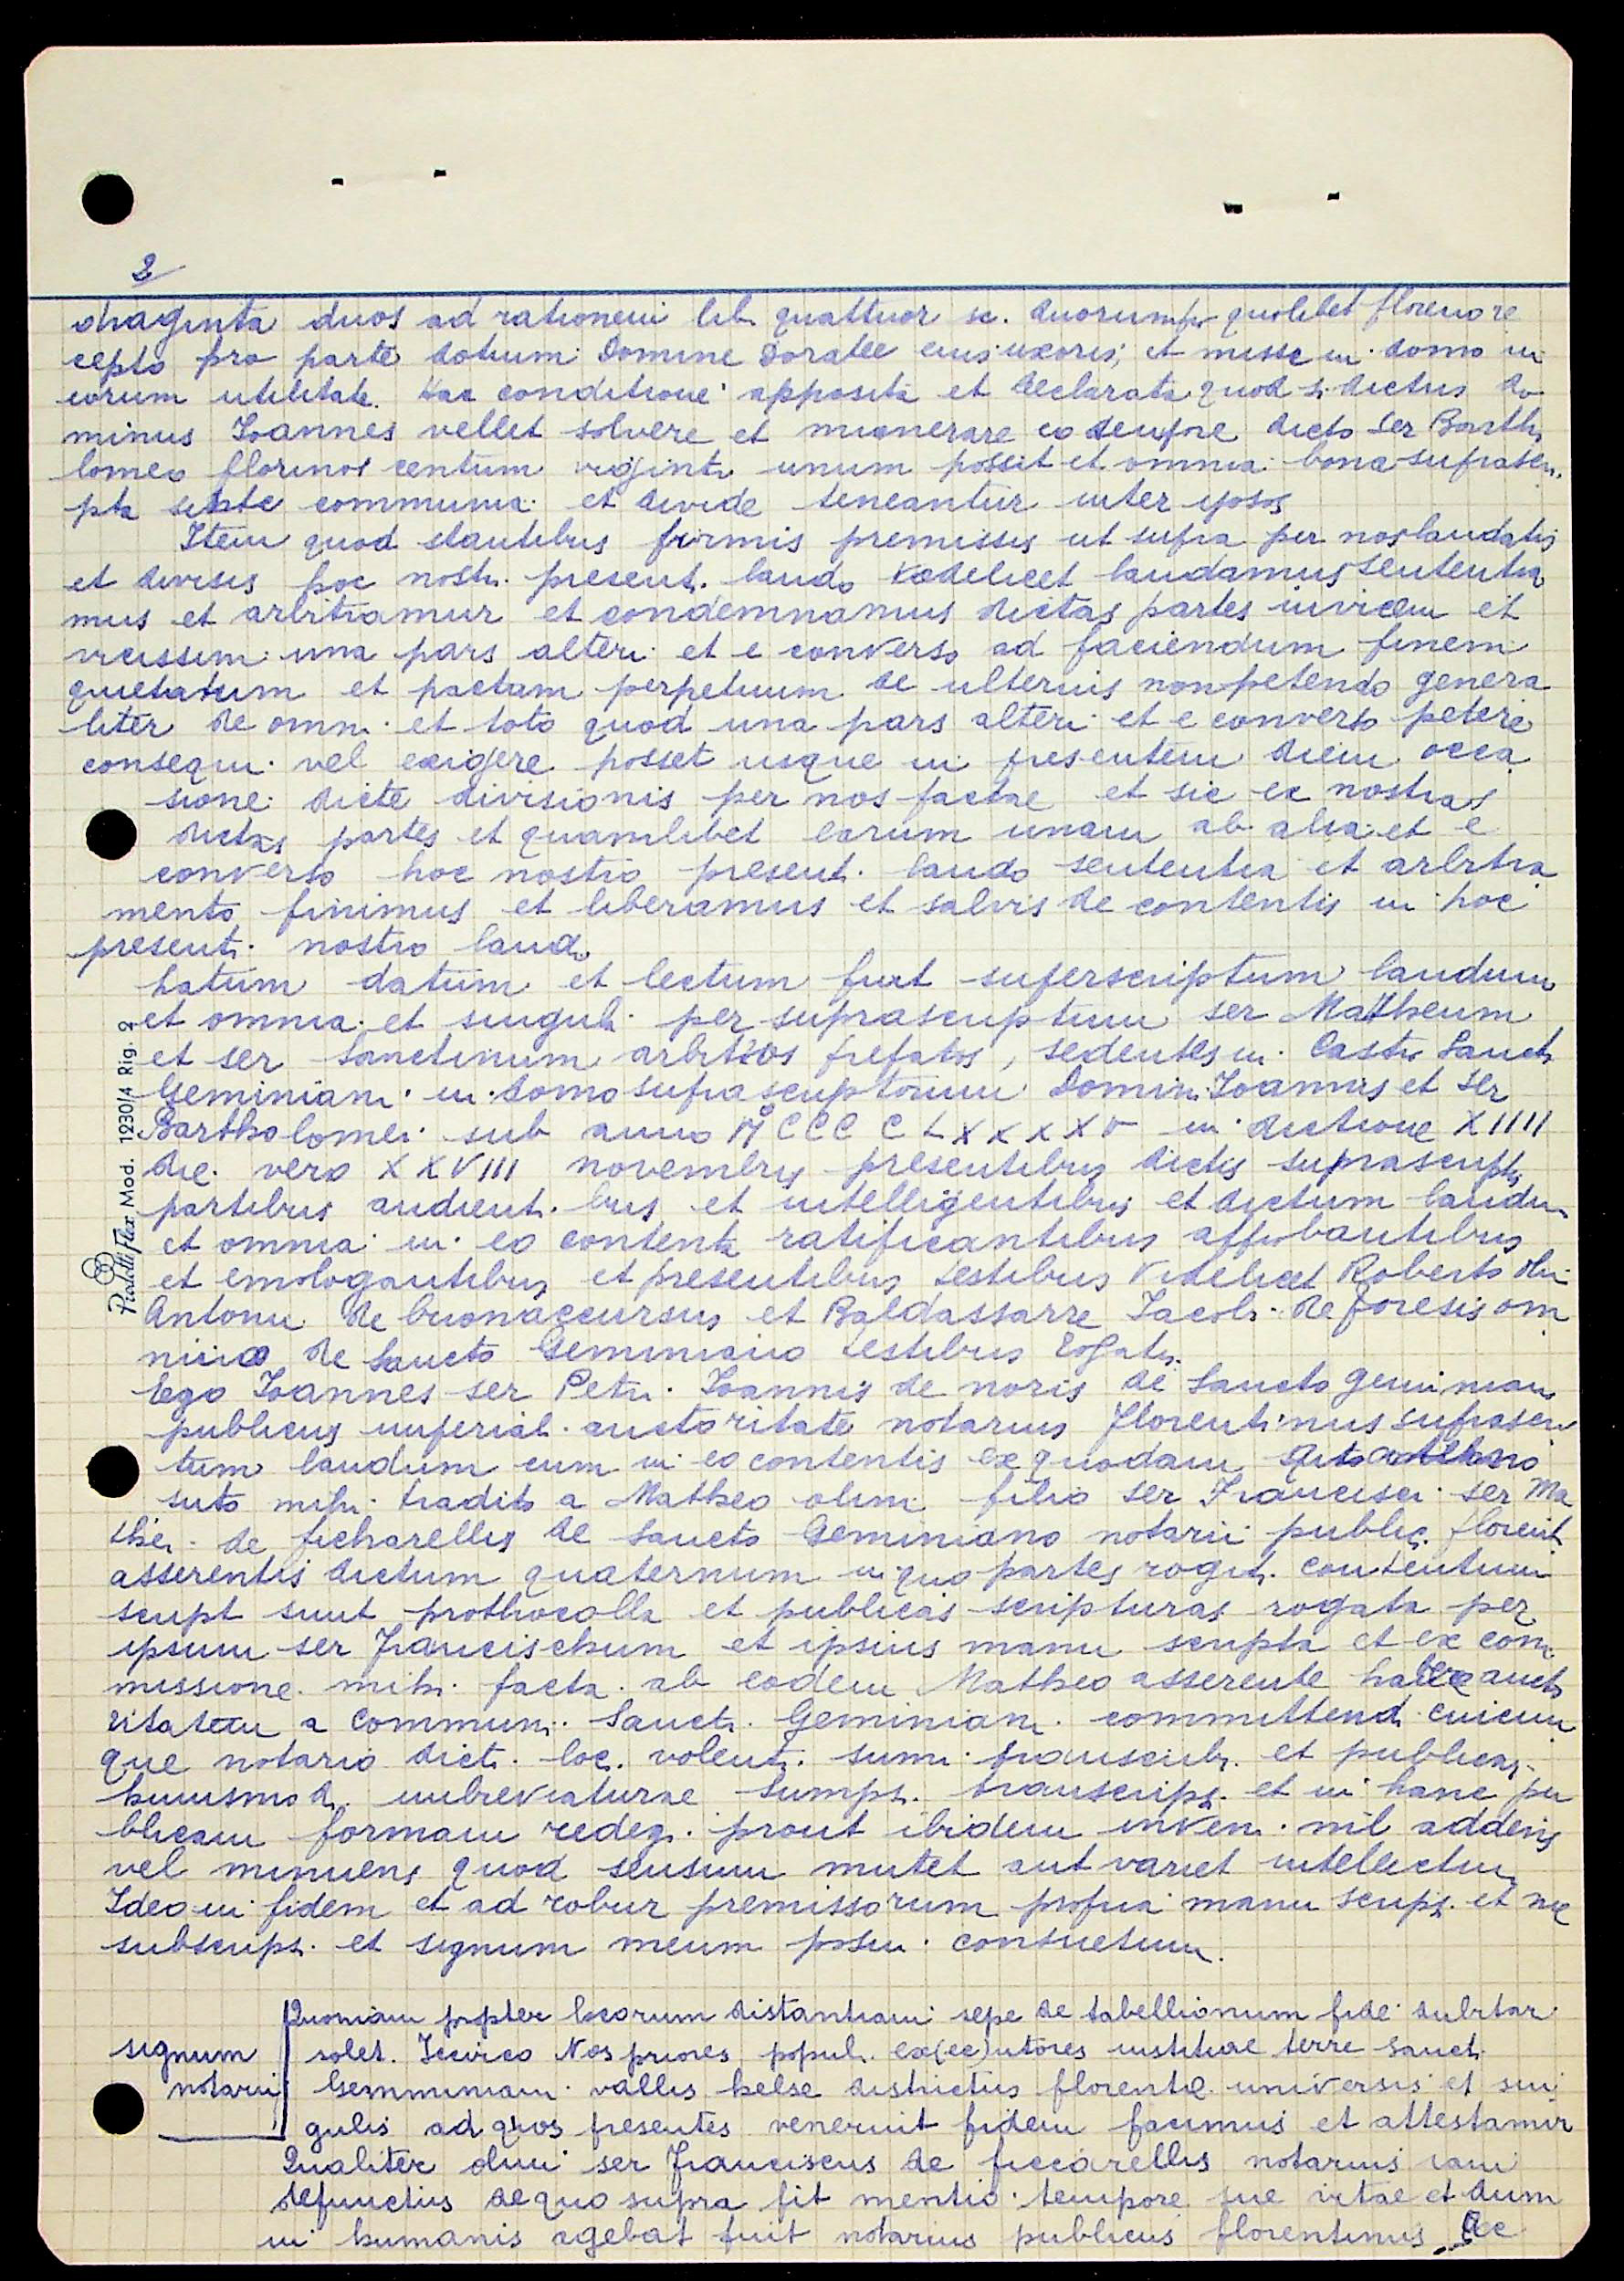 2
draginta duos ad rationem lib. quattuor sc. duorum pro quolibet floreno re
cepto pro parte dotium Domine Doratee eius uxoris; et misse in domo in
eorum utilitate. Hac conditione apposita et declarata quod si dictus do
minus Ioannes vellet solvere et numerare eo tempore dicto Ser Barth
lomeo florinos centum viginti unum possit et omnia bona suprascri
pta communia et divide teneantur inter ipsos
Item quod stantibus firmis premissis ut supra per nos laudatis
et divisis hoc nostr. present. laudo videlicet laudamus sententia
mus et arbitramur et condemnamus dictas partes invicem et
vicissim una pars alteri et e converso ad faciendum finem
quietatum et pactam perpetuum de ulterius non petendo genera
liter de omni et toto quod una pars alteri et e converso petere
consequi vel exigere posset usque in presentem diem occa
sione dicte divisionis per nos factae et sic ex nostras
dictas partes et quamlibet earum unam ab alia et e
converso hoc nostro present. laudo sententia et arbitra
mento finimus et liberamus et salvis de contentis in hoc
presenti nostro laudo
Latum datum et lectum fuit superscriptum laudum
et omnia et singula per suprascriptum ser Matheum
et ser Sanctinum arbitros prefatos, sedentes in Castro Sancti
Geminiani in domo suprascriptorum Domini Ioannis et ser
Bartholomei sub anno MCCCCLXXXXV in dictione XIIII
die vero XXVIII novembris presentibus dictis suprascriptis
partibus audientibus et intelligentibus et dictum laudum
et omnia in eo contenta ratificantibus approbantibus
et emologantibus et presentibus testibus videlicet Roberto olim
Antonii de buonaccursus et Baldassarre Iacobi de foresis om
nino de Sancto Geminiano testibus rogatis
Ego Ioannes ser Petri Ioannis de noris de Sancto geminiano
publicus imperiali auctoritate notarius florentinus suprascri
tum laudum cum in eo contentis ex quodam
suto mihi tradito a Matheo olim filio ser Francisci ser Ma
thei de ficharellis de Sancto Geminiano notarii public. florent
asserentis dictum quaternum in quo partes rogit. contentum
script sunt prothocolla et publicas scripturas rogata per
ipsum ser Francischum et ipsius manu scripta et ex com
missione mihi facta ab eodem Matheo asserente habere aucto
ritatem a Communi Sancti Geminiani committendi cuicum
que notario dict. loc. volenti sumi transcrib. et publicas
huiusmodi imbreviaturae sumpsi transcripsi et in hanc pu
blicam formam redegi prout ibidem inveni nil addens
vel minuens quod sensum mutet aut variet intellectum
Ideo in fidem et ad robur premissorum propria manu scripsi et me
subscripsi et signum meum posui consuetum.
Quoniam propter locorum distantiam sepe de tabellionum fide dubitar
signum solet. Iccirco Nos priores populi ex(ec)utores iustitiae terre Sancti
notarii Gemminiani vallis helse districtus florentie universis et sin
gulis ad quos presentes venerint fidem facimus et attestamur
Qualiter olim ser Franciscus de ficcarellis notarius iam
defunctus de quo supra fit mentio tempore sue vitae et dum
in humanis agebat fuit notarius publicus florentinus ac
Pratelli Flex Mod. 1230/4 Rig. 2